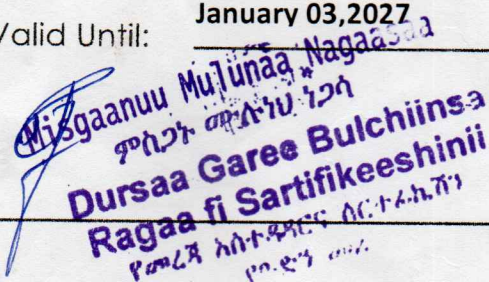 Valid Until: January 03,2027
Misgaanuu Mulunaa Nagaasaa
ምስጋኑ ሙሉነህ ነጋሳ
Dursaa Garee Bulchiinsa
Ragaa fi Sartifikeeshinii
የመረጃ አስተዳደርና ሰርተፊኬሽን
የቡድን መሪ